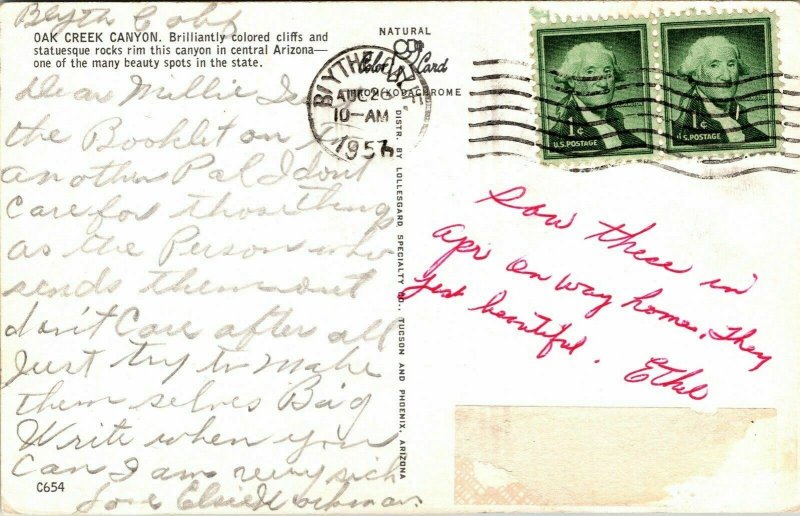 Blyth Calif
OAK CREEK CANYON. Brilliantly colored cliffs and
statuesque rocks rim this canyon in central Arizona—
one of the many beauty spots in the state.
Dear Millie
the Booklet on
another Pal I dont
Care for those things
as the Person who
sends them out
don't Care after all
Just try to make
them selves Big
Write when you
Can I am very sick
Love Elsie
C654
NATURAL
Color Card
DISTR. BY LOLLESGARD SPECIALTY CO., TUCSON AND PHOENIX, ARIZONA
BLYTHE
AUG 26
10-AM
1957
1¢
U.S. POSTAGE
1¢
U.S. POSTAGE
saw these in
Apr on way home, they
just beautiful.
Ethel